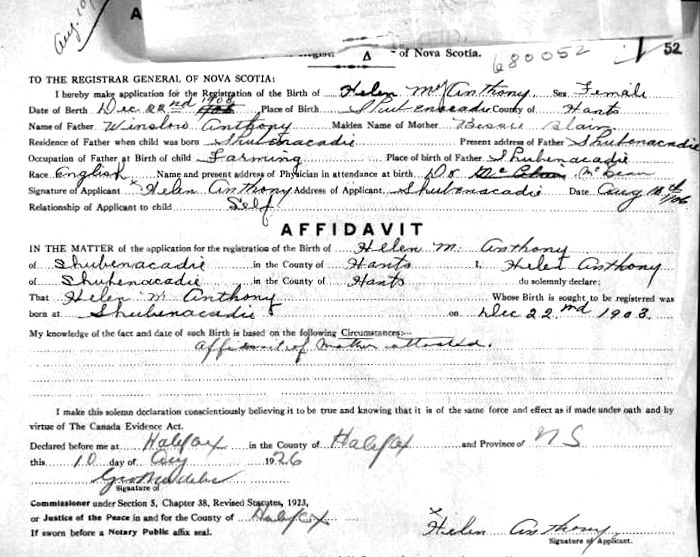 Aug 10/
A
of Nova Scotia.
680052
52
TO THE REGISTRAR GENERAL OF NOVA SCOTIA:
I hereby make application for the Registration of the Birth of Helen M. Anthony Sex Female
Date of Berth Dec 22nd 1903 Place of Birth Shubenacadie County of Hants
Name of Father Winslow Anthony Maiden Name of Mother Bessie
Residence of Father when child was born Shubenacadie Present address of Father Shubenacadie
Occupation of Father at Birth of child Farming Place of birth of Father Shubenacadie
Race English Name and present address of Physician in attendance at birth Dr McLean
Signature of Applicant x Helen Anthony Address of Applicant Shubenacadie Date Aug 10th
Relationship of Applicant to child Self
AFFIDAVIT
IN THE MATTER of the application for the registration of the Birth of Helen M. Anthony
of Shubenacadie in the County of Hants I, Helen Anthony
of Shubenacadie in the County of Hants do solemnly declare:
That Helen M Anthony Whose Birth is sought to be registered was
born at Shubenacadie on Dec 22nd 1903.
My knowledge of the fact and date of such Birth is based on the following Circumstances:—
Affidavit of Mother attached.
I make this solemn declaration conscientiously believing it to be true and knowing that it is of the same force and effect as if made under oath and by
virtue of The Canada Evidence Act.
Declared before me at Halifax in the County of Halifax and Province of N S
this 10 day of Aug 1926
Signature of
Commissioner under Section 5, Chapter 38, Revised Statutes, 1923,
or Justice of the Peace in and for the County of Halifax
If sworn before a Notary Public affix seal.
x Helen Anthony
Signature of Applicant.